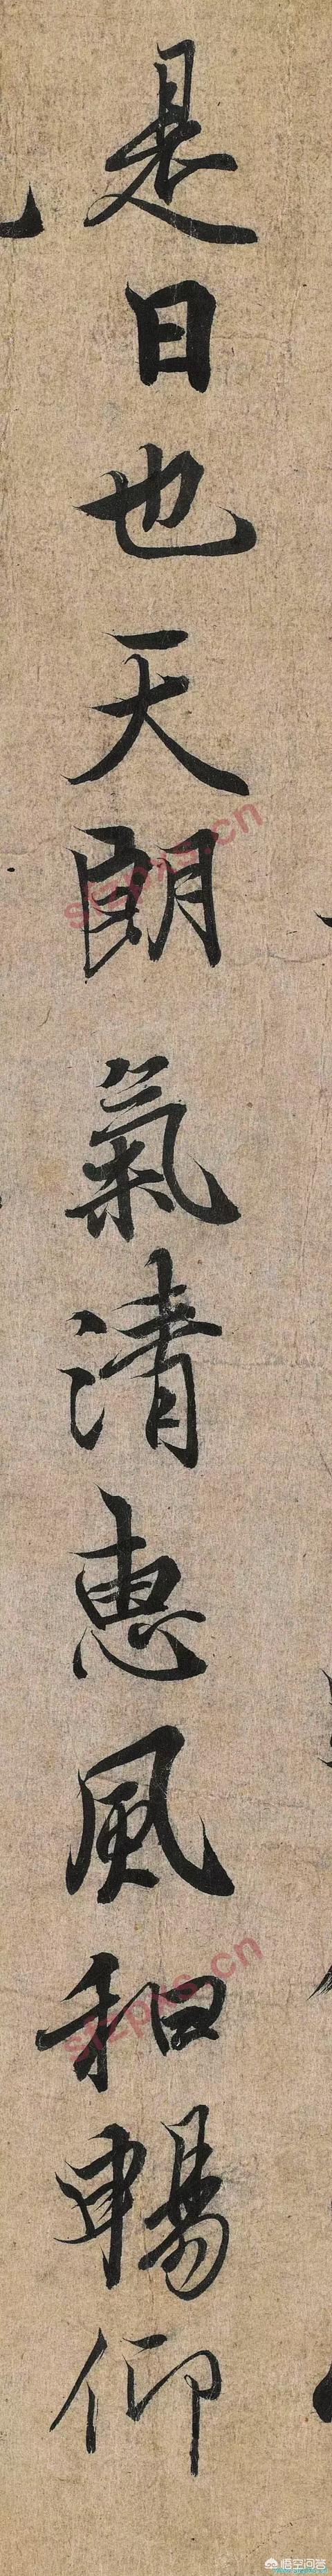 是日也天朗氣清惠風和暢仰
sfzpxs.cn
sfzpxs.cn
悟空问答